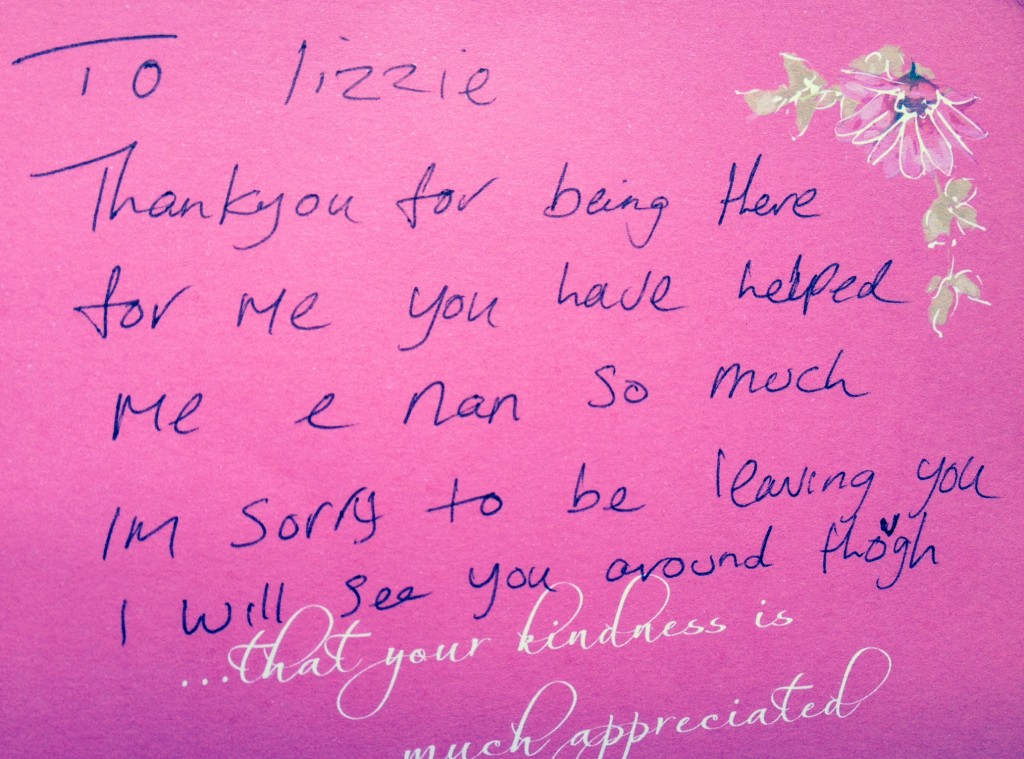 To lizzie
Thankyou for being there
for me you have helped
me e nan so much
Im sorry to be leaving you
I will see you around though
...that your kindness is
much appreciated